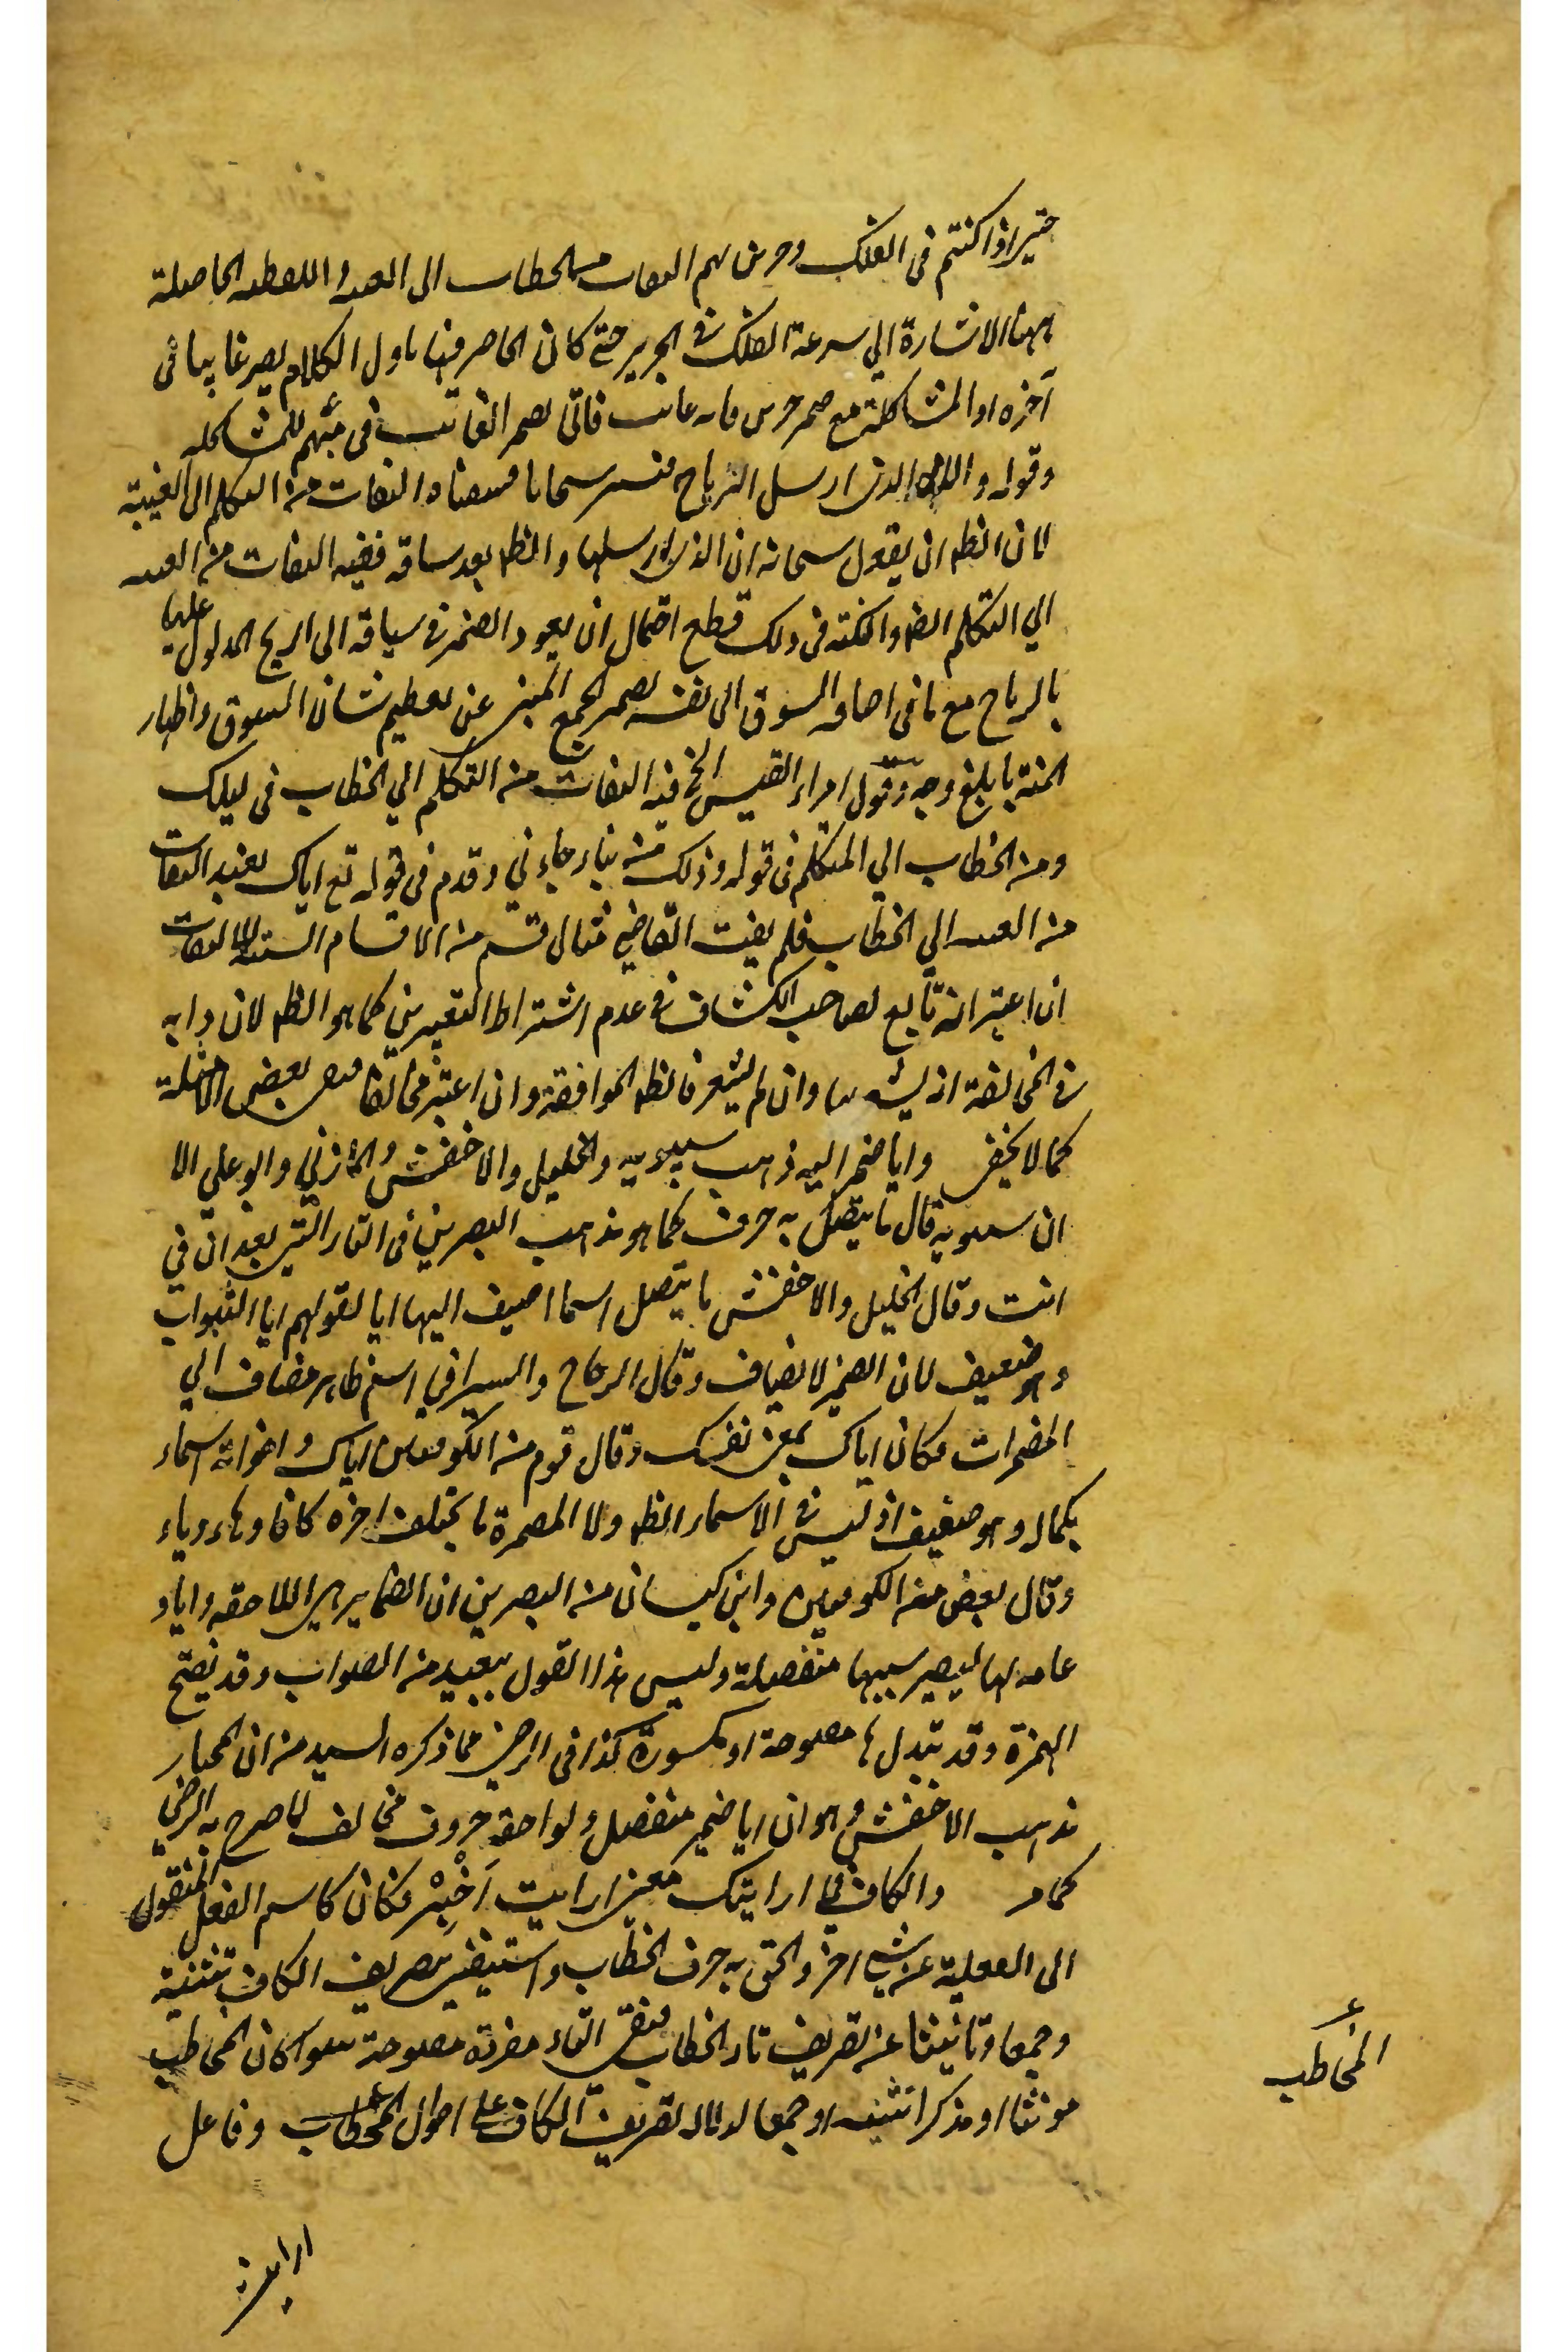 حتى اذا كنتم فى الفلك وجرين بهم التفات من الخطاب الى الغيبة و اللطيفة الحاصلة
بهذا الاشارة الى سرعة الفلك فى الجرى حتى كان الحاضر فيها باول الكلام يصير غايبا فى
آخره او المشاكلة مع ضمير جرين فانه غائب فاتى بضمير الغائب فى بهم للمشاكله
وقوله والله الذى ارسل الرياح فتثير سحابا فسقناه التفات من التكلم الى الغيبة
لان الظ ان يقول سبحانه انا الذى ارسلها والظ بعد ساقه ففيه التفات من الغيبة
الى التكلم ايضا والنكتة فى ذلك قطع احتمال ان يعود الضمير فى سياقه الى الريح المدلول عليها
بالرياح مع ما فى اضافة السوق الى نفسه بضمير الجمع المنبئ عن تعظيم شان المسوق واظهار
المنة بابلغ وجه وقول امراء القيس الخ فيه التفات من التكلم الى الخطاب فى ليلك
ومن الخطاب الى المتكلم فى قوله وذلك من نباء جاءنى وقدم فى قوله تع اياك نعبد التفات
من الغيبة الى الخطاب فلم يفت القاضى مثال قسم من الاقسام الستة للالتفات
ان اعتبر انه تابع لصاحب الكشاف فى عدم اشتراط التعبيرين كما هو الظ لان دابه
فى المخالفة انه يشعر بها وان لم يشعر فالظ الموافقة وان اعتبر مخالفا فيبقى بعض الامثلة
كما لا يخفى وايا ضمير اليه ذهب سيبويه والخليل والاخفش والمازنى وابو على الا
ان سيبويه قال ما يتصل به حرف كما هو مذهب البصريين فى التاء التى بعد ان فى
انت وقال الخليل والاخفش ما يتصل اسما اضيف اليها ايا لقولهم ايا الشواب
وهو ضعيف لان الضمير لا يضاف وقال الزجاج والسيرافى اسم ظاهر مضاف الى
المضمرات فكان اياك بمعنى نفسك وقال قوم من الكوفيين اياك واخواته اسماء
بكماله وهو ضعيف اذ ليس فى الاسماء الظ ولا المضمرة ما يختلف اخره كافا وهاء وياء
وقال بعض من الكوفيين وابن كيسان من البصريين ان الضماير هى اللاحقة وايا د
عامة لها ليصير بسببها منفصلة وليس هذا القول ببعيد من الصواب وقد يفتح
الهمزة وقد تبدل ها مفتوحة او مكسورة كذا فى الرضى فما ذكره السيد من ان المختار
مذهب الاخفش وهو ان ايا ضمير منفصل ولواحقه حروف مخالف لما صرح به الرضى
كما مر والكاف فى ارايتك معنى ارايت اَخْبِرْ فكان كاسم الفعل المنقول
الى الفعلية عن شئ اخر والحق به حرف الخطاب واستغنى بتصريف الكاف بتثنية
وجمعا وتانيثا عن تصريف تاء الخطاب فتبقى التاء مفردة مفتوحة سواء كان المخاطب
مونثا او مذكرا تثنية او جمعا لدلالة تصريف الكاف على احوال المخاطب وفاعل
المخاطب